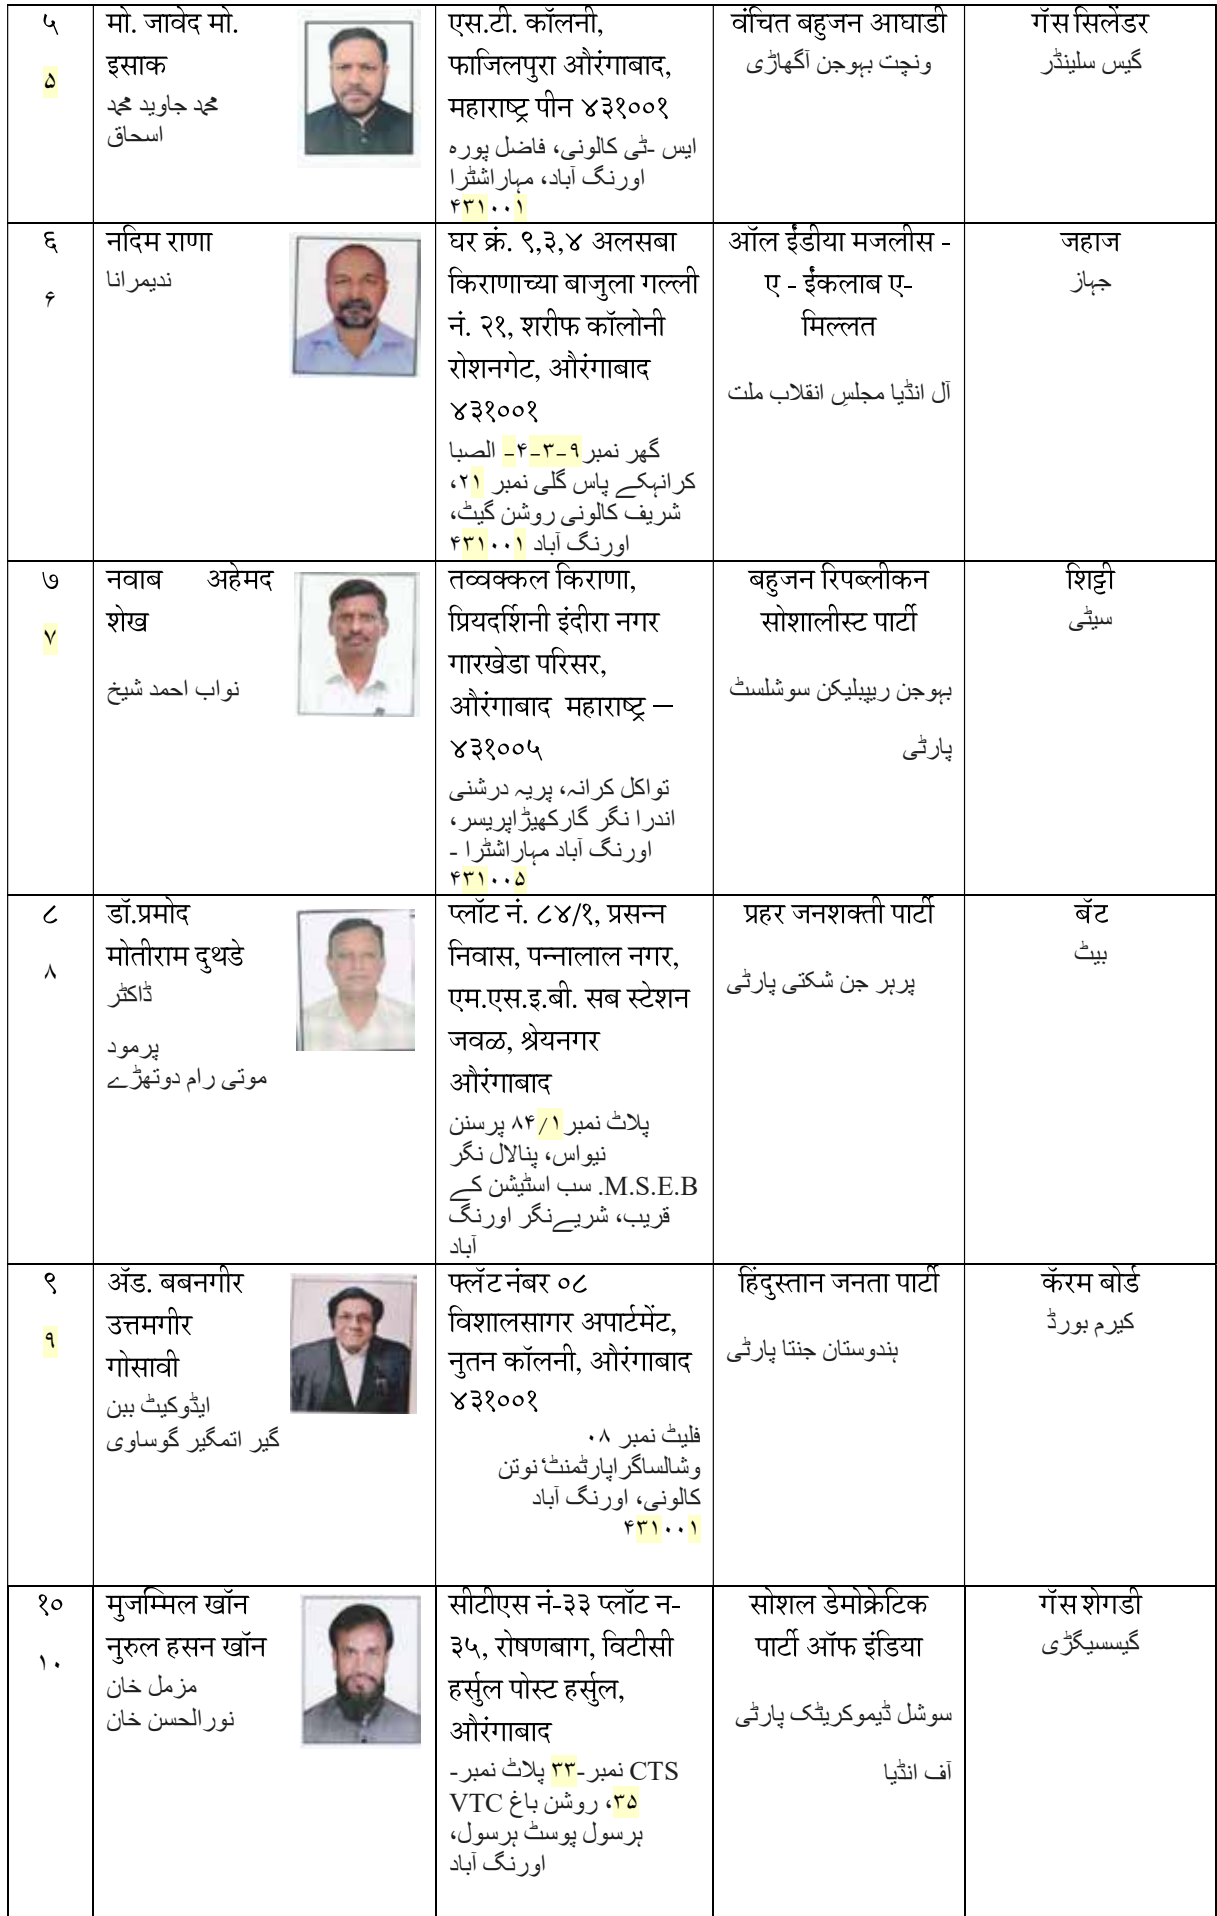 ५
५
मो. जावेद मो.
इसाक
محمد جاوید محمد
اسحاق
एस.टी. कॉलनी,
फाजिलपुरा औरंगाबाद,
महाराष्ट्र पीन ४३१००१
ایس -ٹی کالونی، فاضل پورہ
اورنگ آباد، مہاراشٹرا
۴۳۱۰۰۱
वंचित बहुजन आघाडी
ونچت بہوجن آگھاڑی
गॅस सिलेंडर
گیس سلینڈر
६
۶
नदिम राणा
ندیمرانا
घर क्रं. ९,३,४ अलसबा
किराणाच्या बाजुला गल्ली
नं. २१, शरीफ कॉलोनी
रोशनगेट, औरंगाबाद
४३१००१
گھر نمبر۹-۳-۴- الصبا
کرانہکے پاس گلی نمبر ۲۱،
شریف کالونی روشن گیٹ،
اورنگ آباد ۴۳۱۰۰۱
ऑल ईंडीया मजलीस -
ए - ईंकलाब ए-
मिल्लत
آل انڈیا مجلسِ انقلاب ملت
जहाज
جہاز
७
۷
नवाब अहेमद
शेख
نواب احمد شیخ
तव्वक्कल किराणा,
प्रियदर्शिनी इंदीरा नगर
गारखेडा परिसर,
औरंगाबाद महाराष्ट्र –
४३१००५
تواکل کرانہ، پریہ درشنی
اندرا نگر گارکھیڑاپریسر،
اورنگ آباد مہاراشٹرا -
۴۳۱۰۰۵
बहुजन रिपब्लीकन
सोशालीस्ट पार्टी
بہوجن ریپبلیکن سوشلسٹ
پارٹی
शिट्टी
سیٹی
८
۸
डॉ.प्रमोद
मोतीराम दुथडे
ڈاکٹر
پرمود
موتی رام دوتھڑے
प्लॉट नं. ८४/१, प्रसन्न
निवास, पन्नालाल नगर,
एम.एस.इ.बी. सब स्टेशन
जवळ, श्रेयनगर
औरंगाबाद
پلاٹ نمبر۸۴/۱ پرسنن
نیواس، پنالال نگر
M.S.E.B. سب اسٹیشن کے
قریب، شریےنگر اورنگ
آباد
प्रहर जनशक्ती पार्टी
پرہر جن شکتی پارٹی
बॅट
بیٹ
९
۹
ॲड. बबनगीर
उत्तमगीर
गोसावी
ایڈوکیٹ ببن
گیر اتمگیر گوساوی
फ्लॅट नंबर ०८
विशालसागर अपार्टमेंट,
नुतन कॉलनी, औरंगाबाद
४३१००१
فلیٹ نمبر ۰۸
وشالساگراپارٹمنٹ‘نوتن
کالونی، اورنگ آباد
۴۳۱۰۰۱
हिंदुस्तान जनता पार्टी
ہندوستان جنتا پارٹی
कॅरम बोर्ड
کیرم بورڈ
१०
۱۰
मुजम्मिल खॉन
नुरुल हसन खॉन
مزمل خان
نورالحسن خان
सीटीएस नं-३३ प्लॉट न-
३५, रोषणबाग, विटीसी
हर्सुल पोस्ट हर्सुल,
औरंगाबाद
CTS نمبر-۳۳ پلاٹ نمبر-
۳۵، روشن باغ VTC
ہرسول پوسٹ ہرسول،
اورنگ آباد
सोशल डेमोक्रेटिक
पार्टी ऑफ इंडिया
سوشل ڈیموکریٹک پارٹی
آف انڈیا
गॅस शेगडी
گیسسیگڑی